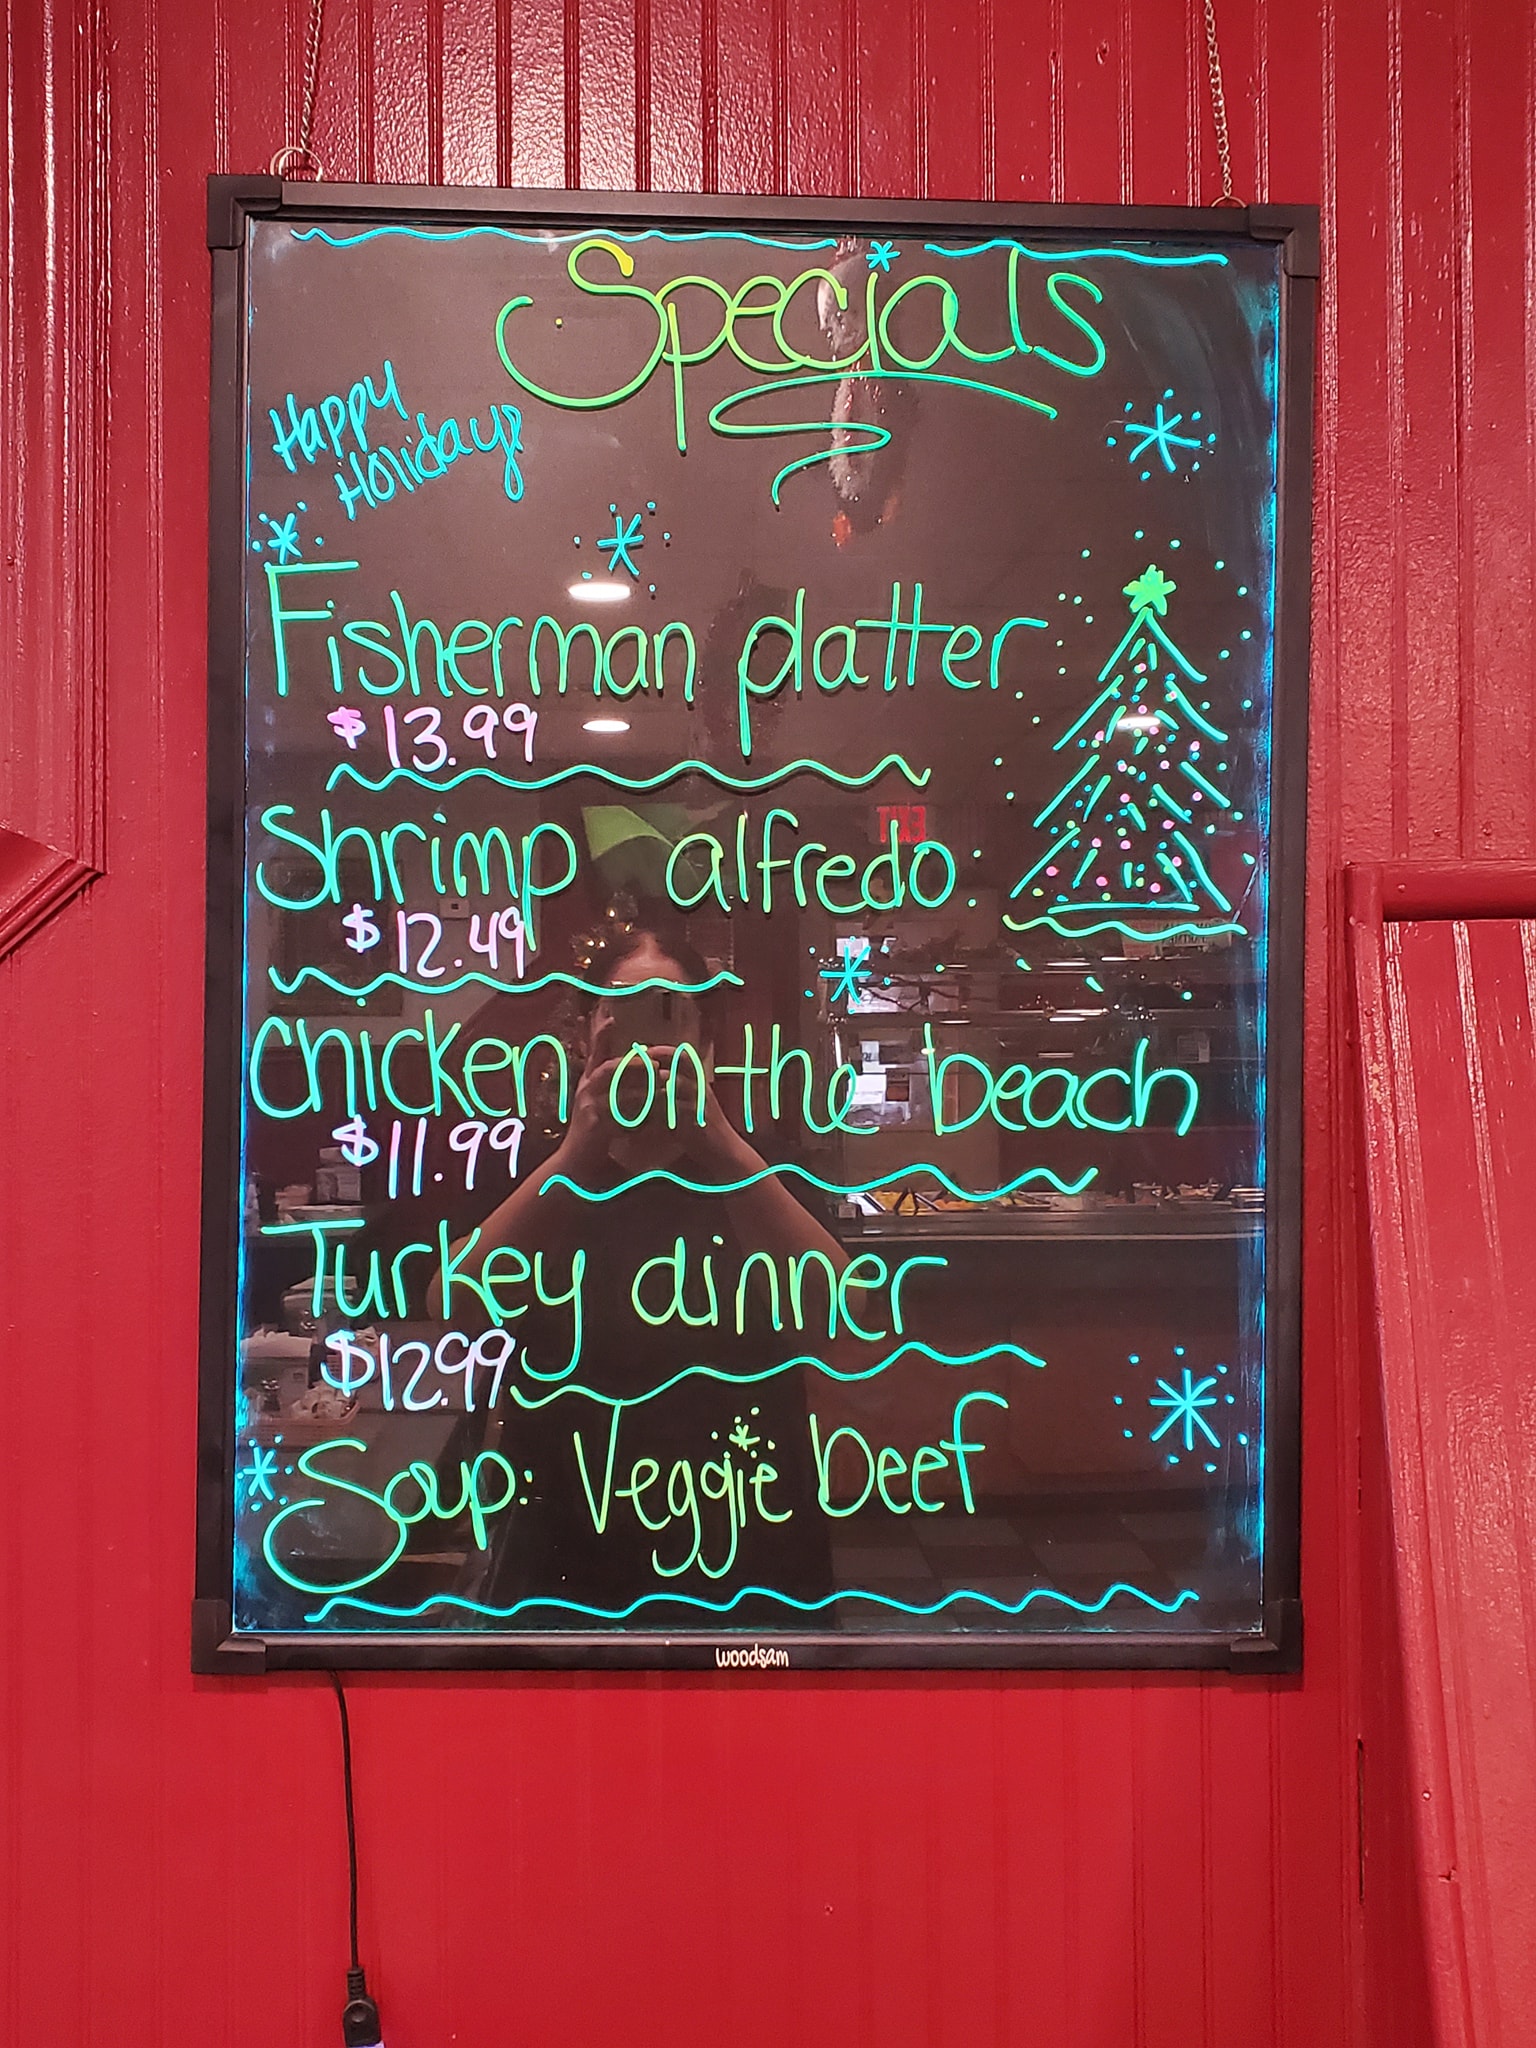 Specials
Happy
Holidays
Fisherman platter
$13.99
Shrimp alfredo
$12.49
Chicken on the beach
$11.99
Turkey dinner
$12.99
Soup: Veggie beef
woodsam